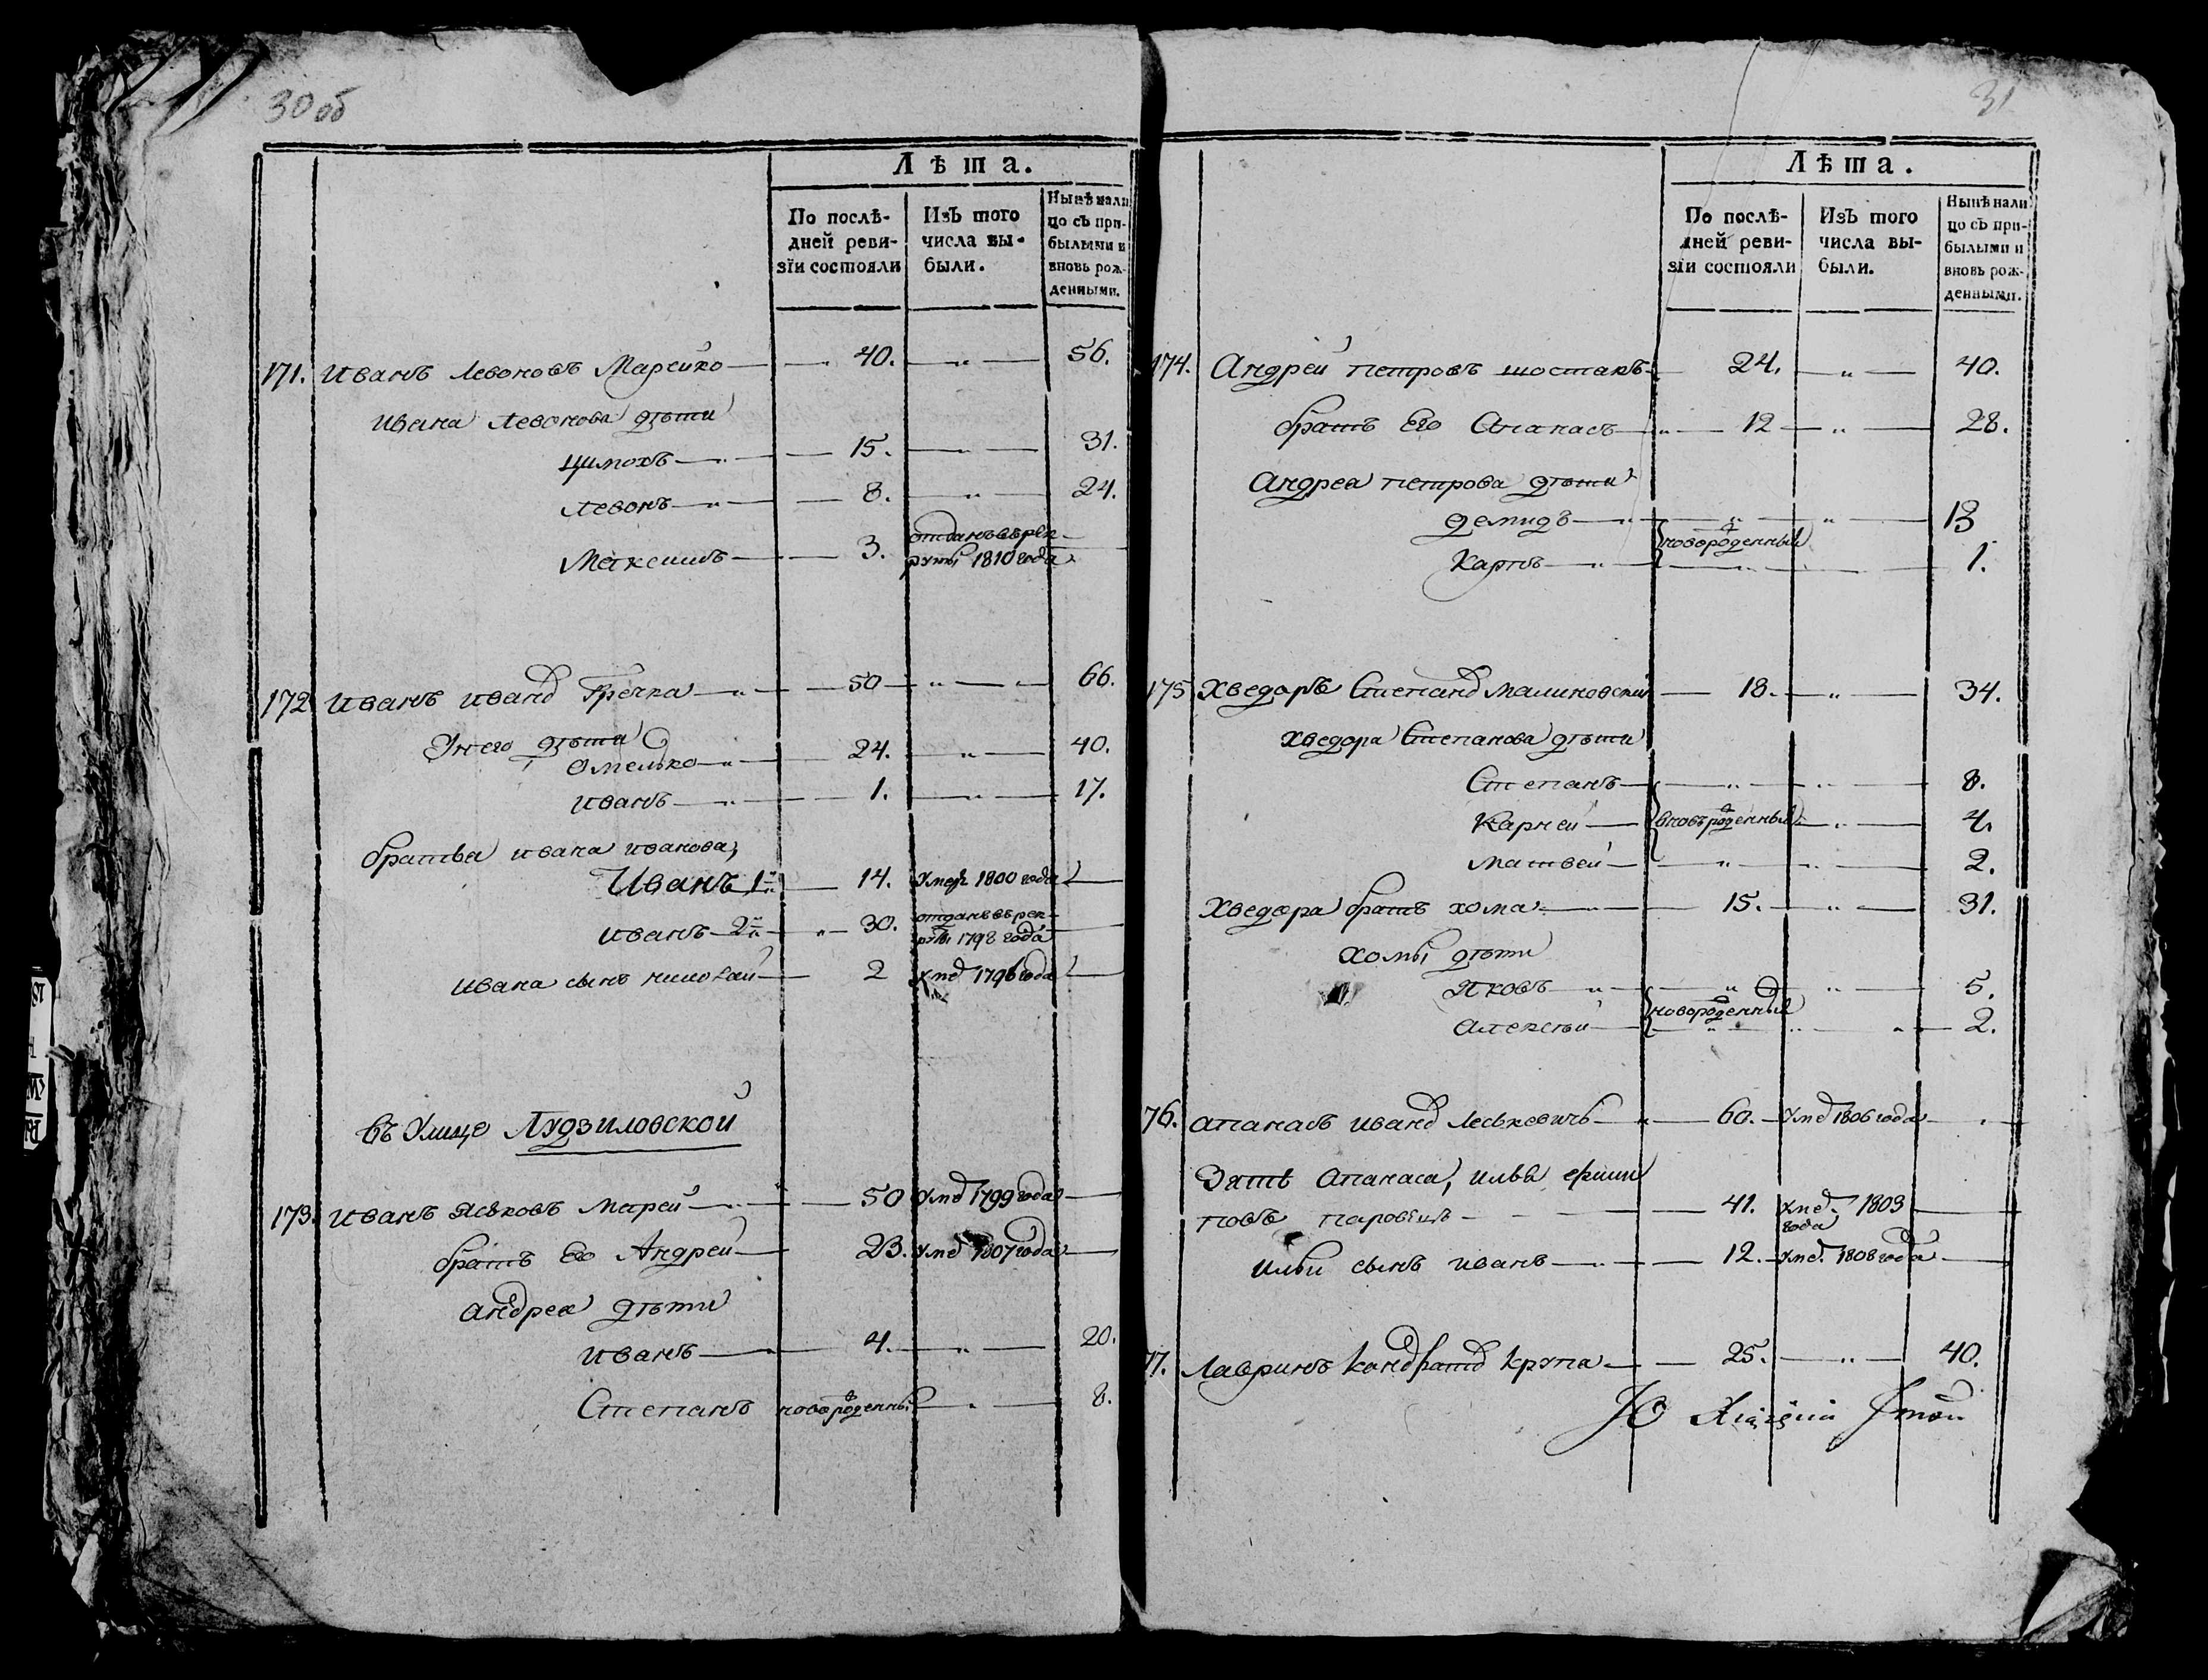 30 об
Лѣта.
По послѣ-
дней реви-
зїи состояли
Изъ того
числа вы-
были.
Нынѣ нали
цо съ при-
былыми и
вновь рож-
денными.
171. Иванъ Левоновъ Марейко 40. „ 56.
Ивана Левонова дѣти
Цимохъ 15. „ 31.
Левонъ 8. „ 24.
Максимъ 3. отданъ въ рек-
руты 1810 года
172 Иванъ Иванов Гречка 50 „ 66.
У него дѣти
Омелько 24. „ 40.
Иванъ 1. „ 17.
братья Ивана Иванова,
Иванъ 1й 14. Умер 1800 года
Иванъ 2й 30. отданъ въ рек-
руты 1798 года
Ивана сынъ Николай 2 Умер 1796 года
въ Улице Лудзиловской
173. Иванъ Ясковъ Марей 50 Умер 1799 года
братъ Его Андрей 23. Умер 1807 года
Андрея дѣти
Иванъ 4. „ 20.
Степанъ новорожденный „ 8.
31
Лѣта.
По послѣ-
дней реви-
зїи состояли
Изъ того
числа вы-
были.
Нынѣ нали
цо съ при-
былыми и
вновь рож-
денными.
174. Андрей Петровъ Шостакъ 24. „ 40.
братъ Его Апанасъ 12 „ 28.
Андрея Петрова дѣти
Демидъ „ „
новорожденные
Карпъ „ 1.
175 Хведоръ Степанов Малиновский 18. „ 34.
Хведора Степанова дѣти
Степанъ „ „ 8.
Карней вновьрожденные „ 4.
Матвей „ „ 2.
Хведора братъ Хома 15. „ 31.
Хомы дѣти
Яковъ „ „ 5.
новорожденные
Алексѣй „ „ 2.
76. Апанасъ Иванов Леськевичъ 60. Умер 1806 года
Зять Апанаса, Илья Ерши
повъ Паровецъ 41. Умер 1803
года
Ильи сынъ Иванъ 12. Умер 1808 года
77. Лавринъ Кондратов Крупа 25. „ 40.